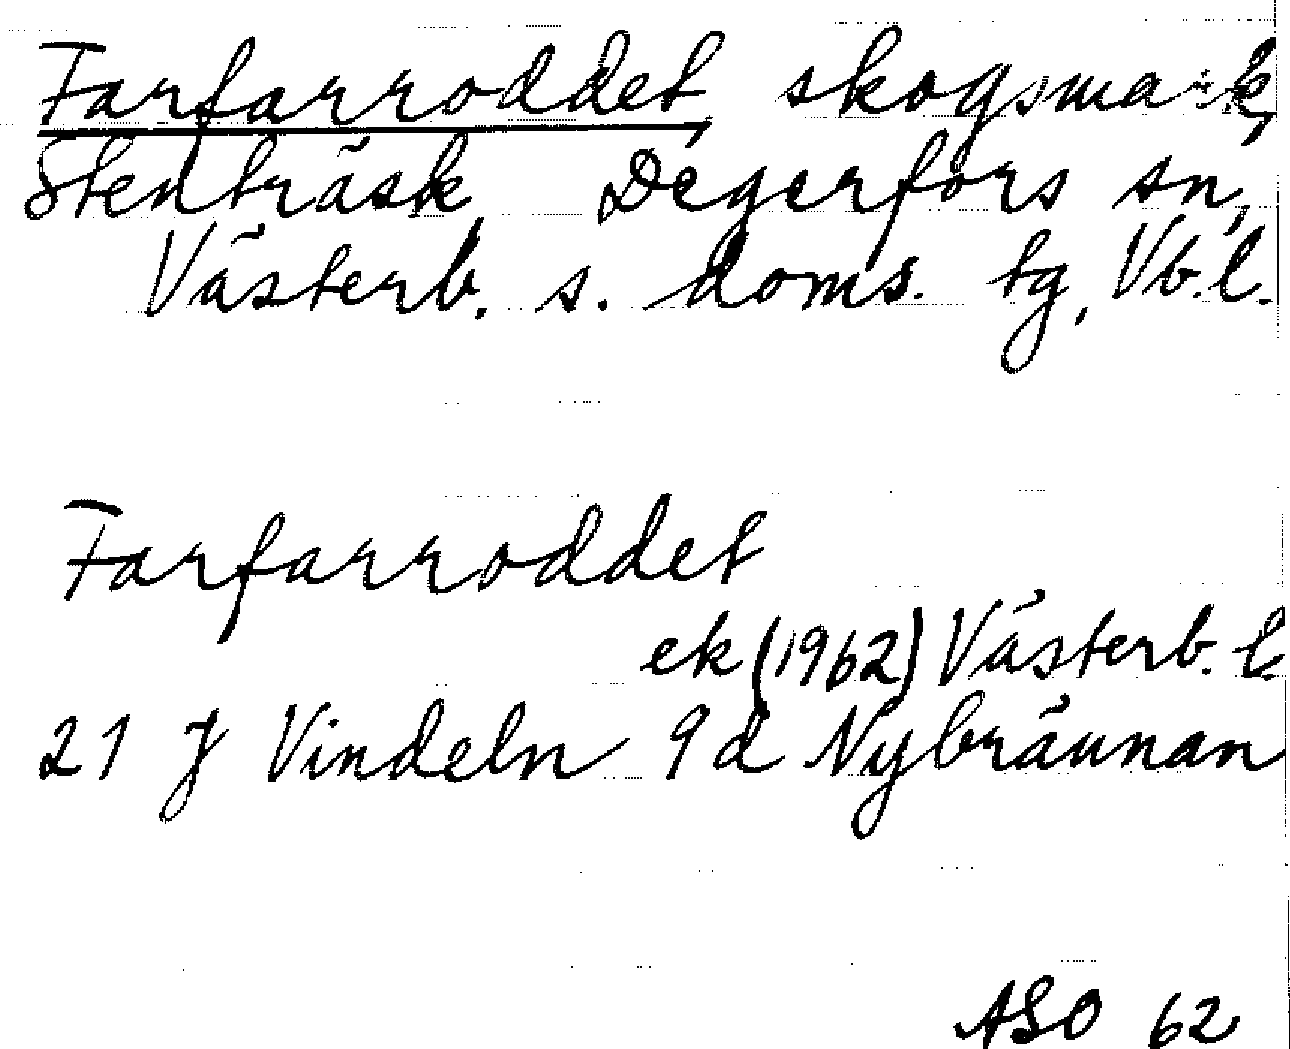 Farfarroddet, skogsmark,
Stenträsk, Degerfors sn,
Västerb. s. doms. tg, Vb.l.
Farfarroddet
ek (1962) Västerb. l.
21 J Vindeln 9d Nybräunan
ASO 62